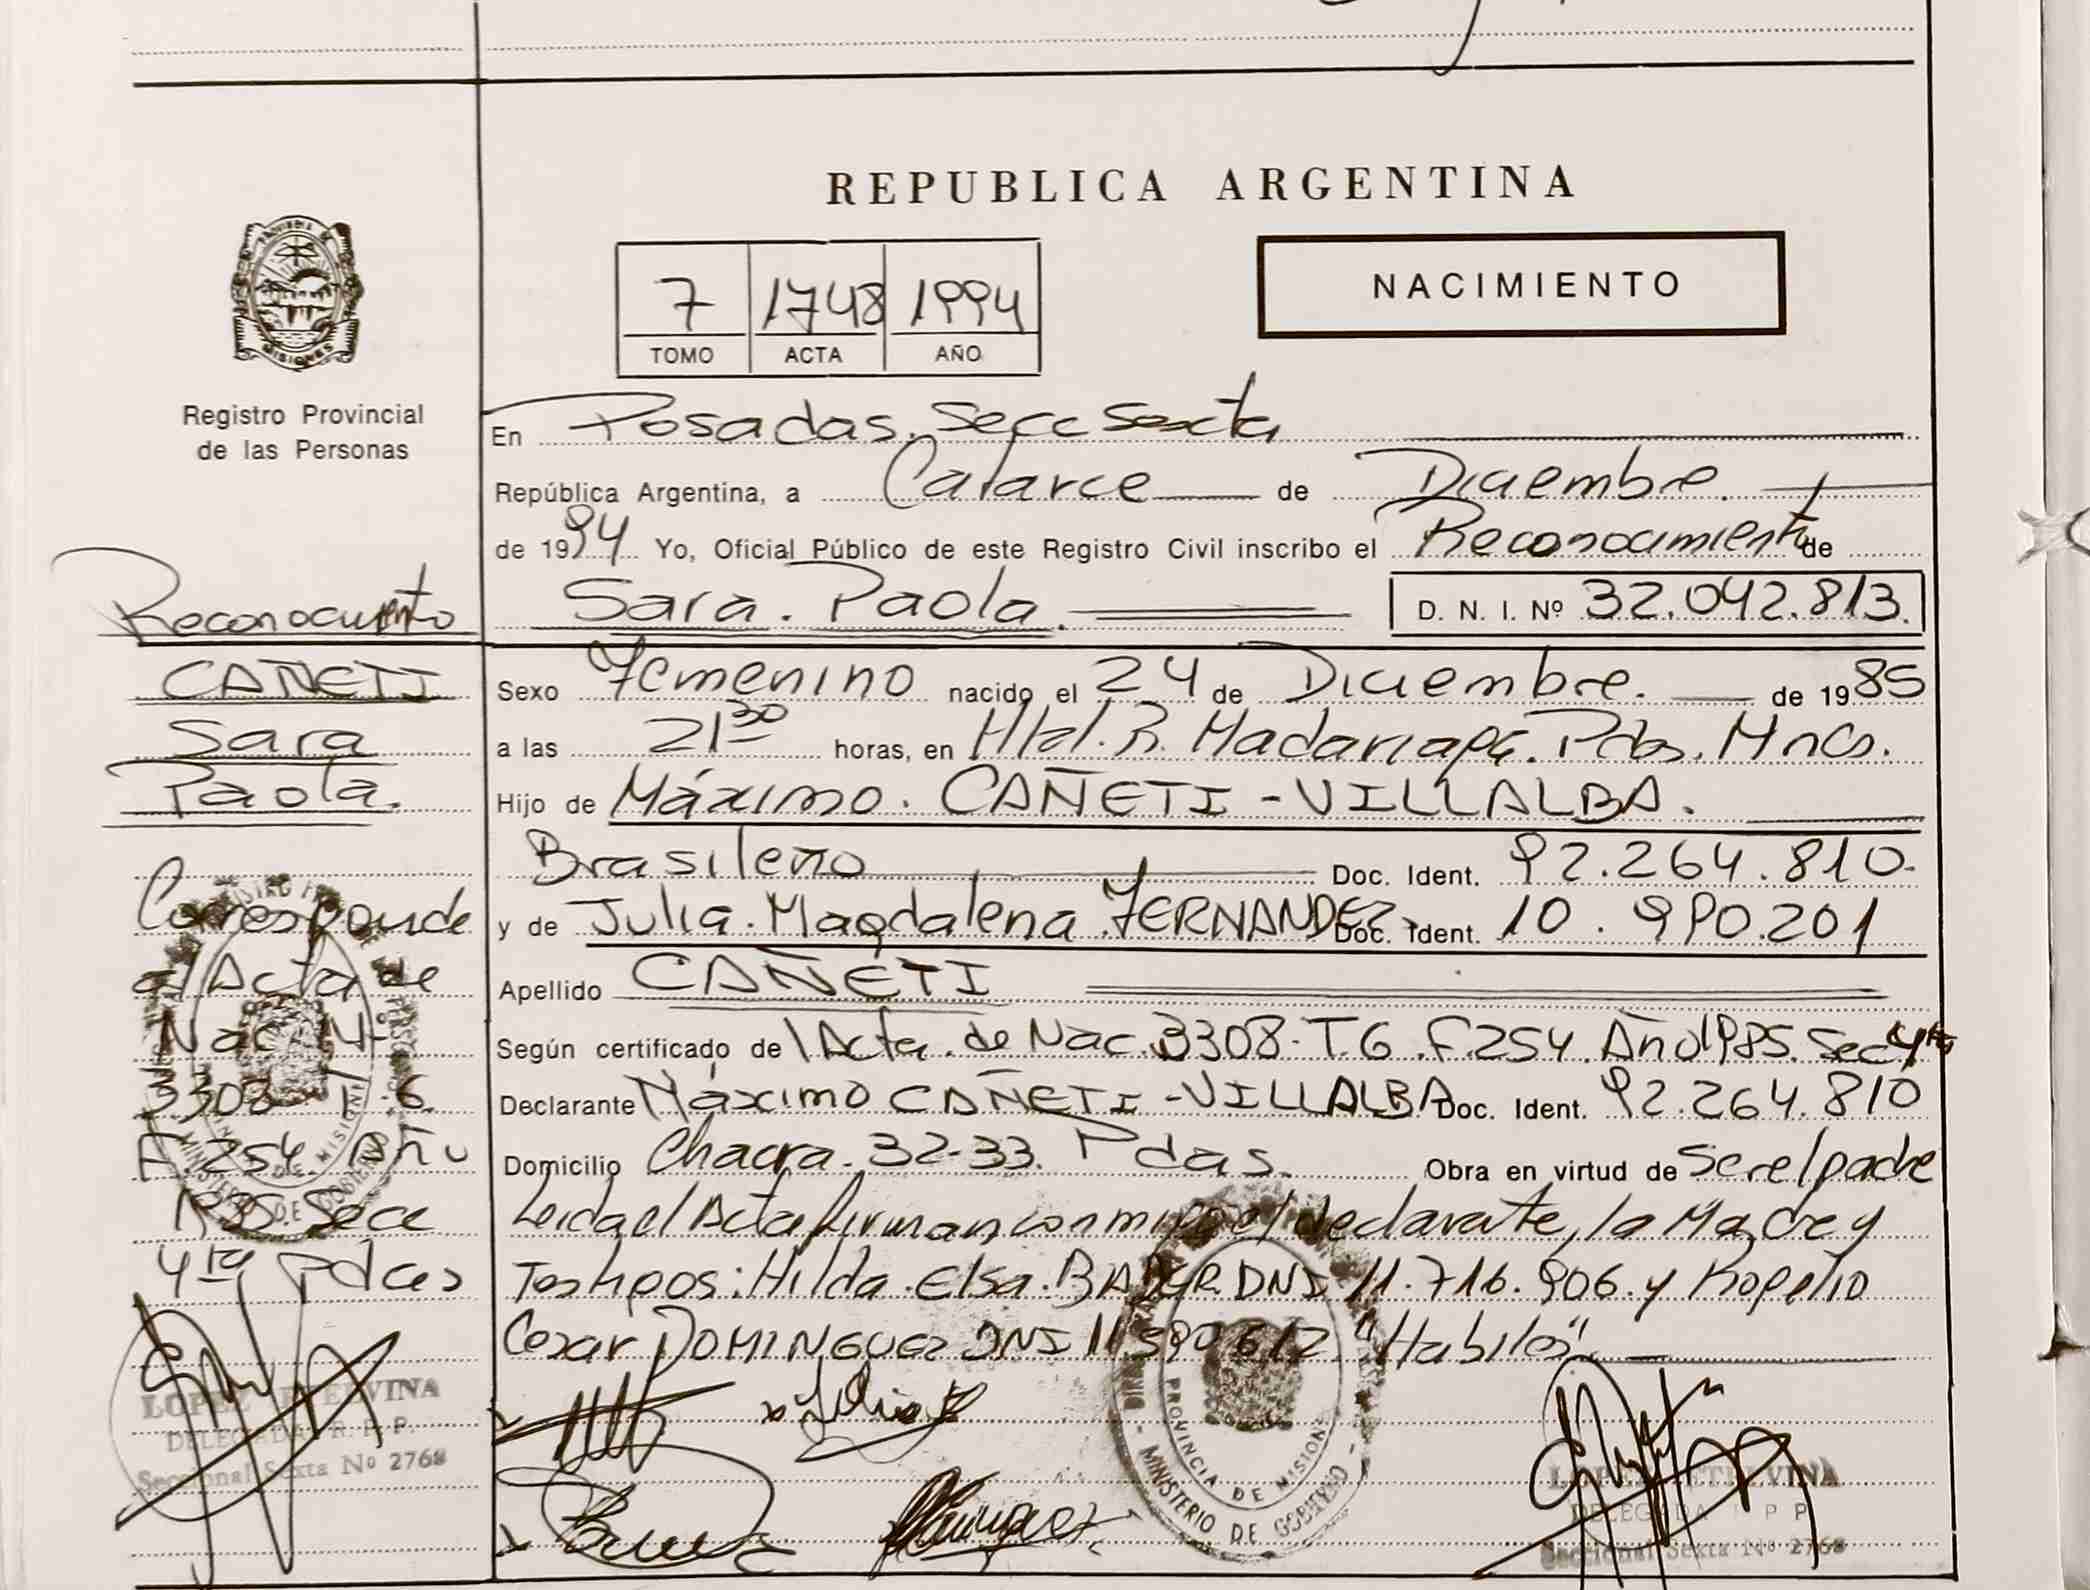 REPUBLICA ARGENTINA
PROVINCIA DE
MISIONES
Registro Provincial
de las Personas
7 1748 1994
TOMO ACTA AÑO
NACIMIENTO
En Posadas. Secc Sexta
República Argentina, a Catorce de Diciembre.
de 1994 Yo, Oficial Público de este Registro Civil inscribo el Reconocimiento de
Sara. Paola. D. N. I. Nº 32.042.813.
Sexo Femenino nacido el 24 de Diciembre. de 1985
a las 21 30 horas, en Htal. R. Madariaga. Pdas. Mnes.
Hijo de Máximo. CAÑETI - VILLALBA.
Brasileño Doc. Ident. 92.264.810.
y de Julia. Magdalena. FERNANDEZ Doc. Ident. 10.990.201
Apellido CAÑETI
Según certificado de Acta. de Nac. 3308. T.6. F.254. Año 1985. Secc 4ta
Declarante Máximo CAÑETI - VILLALBA Doc. Ident. 92.264.810
Domicilio Chacra. 32-33. Pdas. Obra en virtud de Ser el padre
Leida el Acta firman conmigo el declarante, la Madre y
Testigos: Hilda. Elsa. DNI. 11.716.906. y Rogelio
Cesar DOMINGUEZ DNI 11590612 "Habiles".
Reconocimiento
CAÑETI
Sara
Paola.
Corresponde
al Acta de
Nac. Nº
3308 T.6.
F.254. Año
1985. Secc
4ta Pdas
LOPEZ ETELVINA
DELEGADA R. P. P.
Seccional Sexta Nº 2768
PROVINCIA DE MISIONES
MINISTERIO DE GOBIERNO
LOPEZ ETELVINA
DELEGADA P P
Seccional Sexta Nº 2768